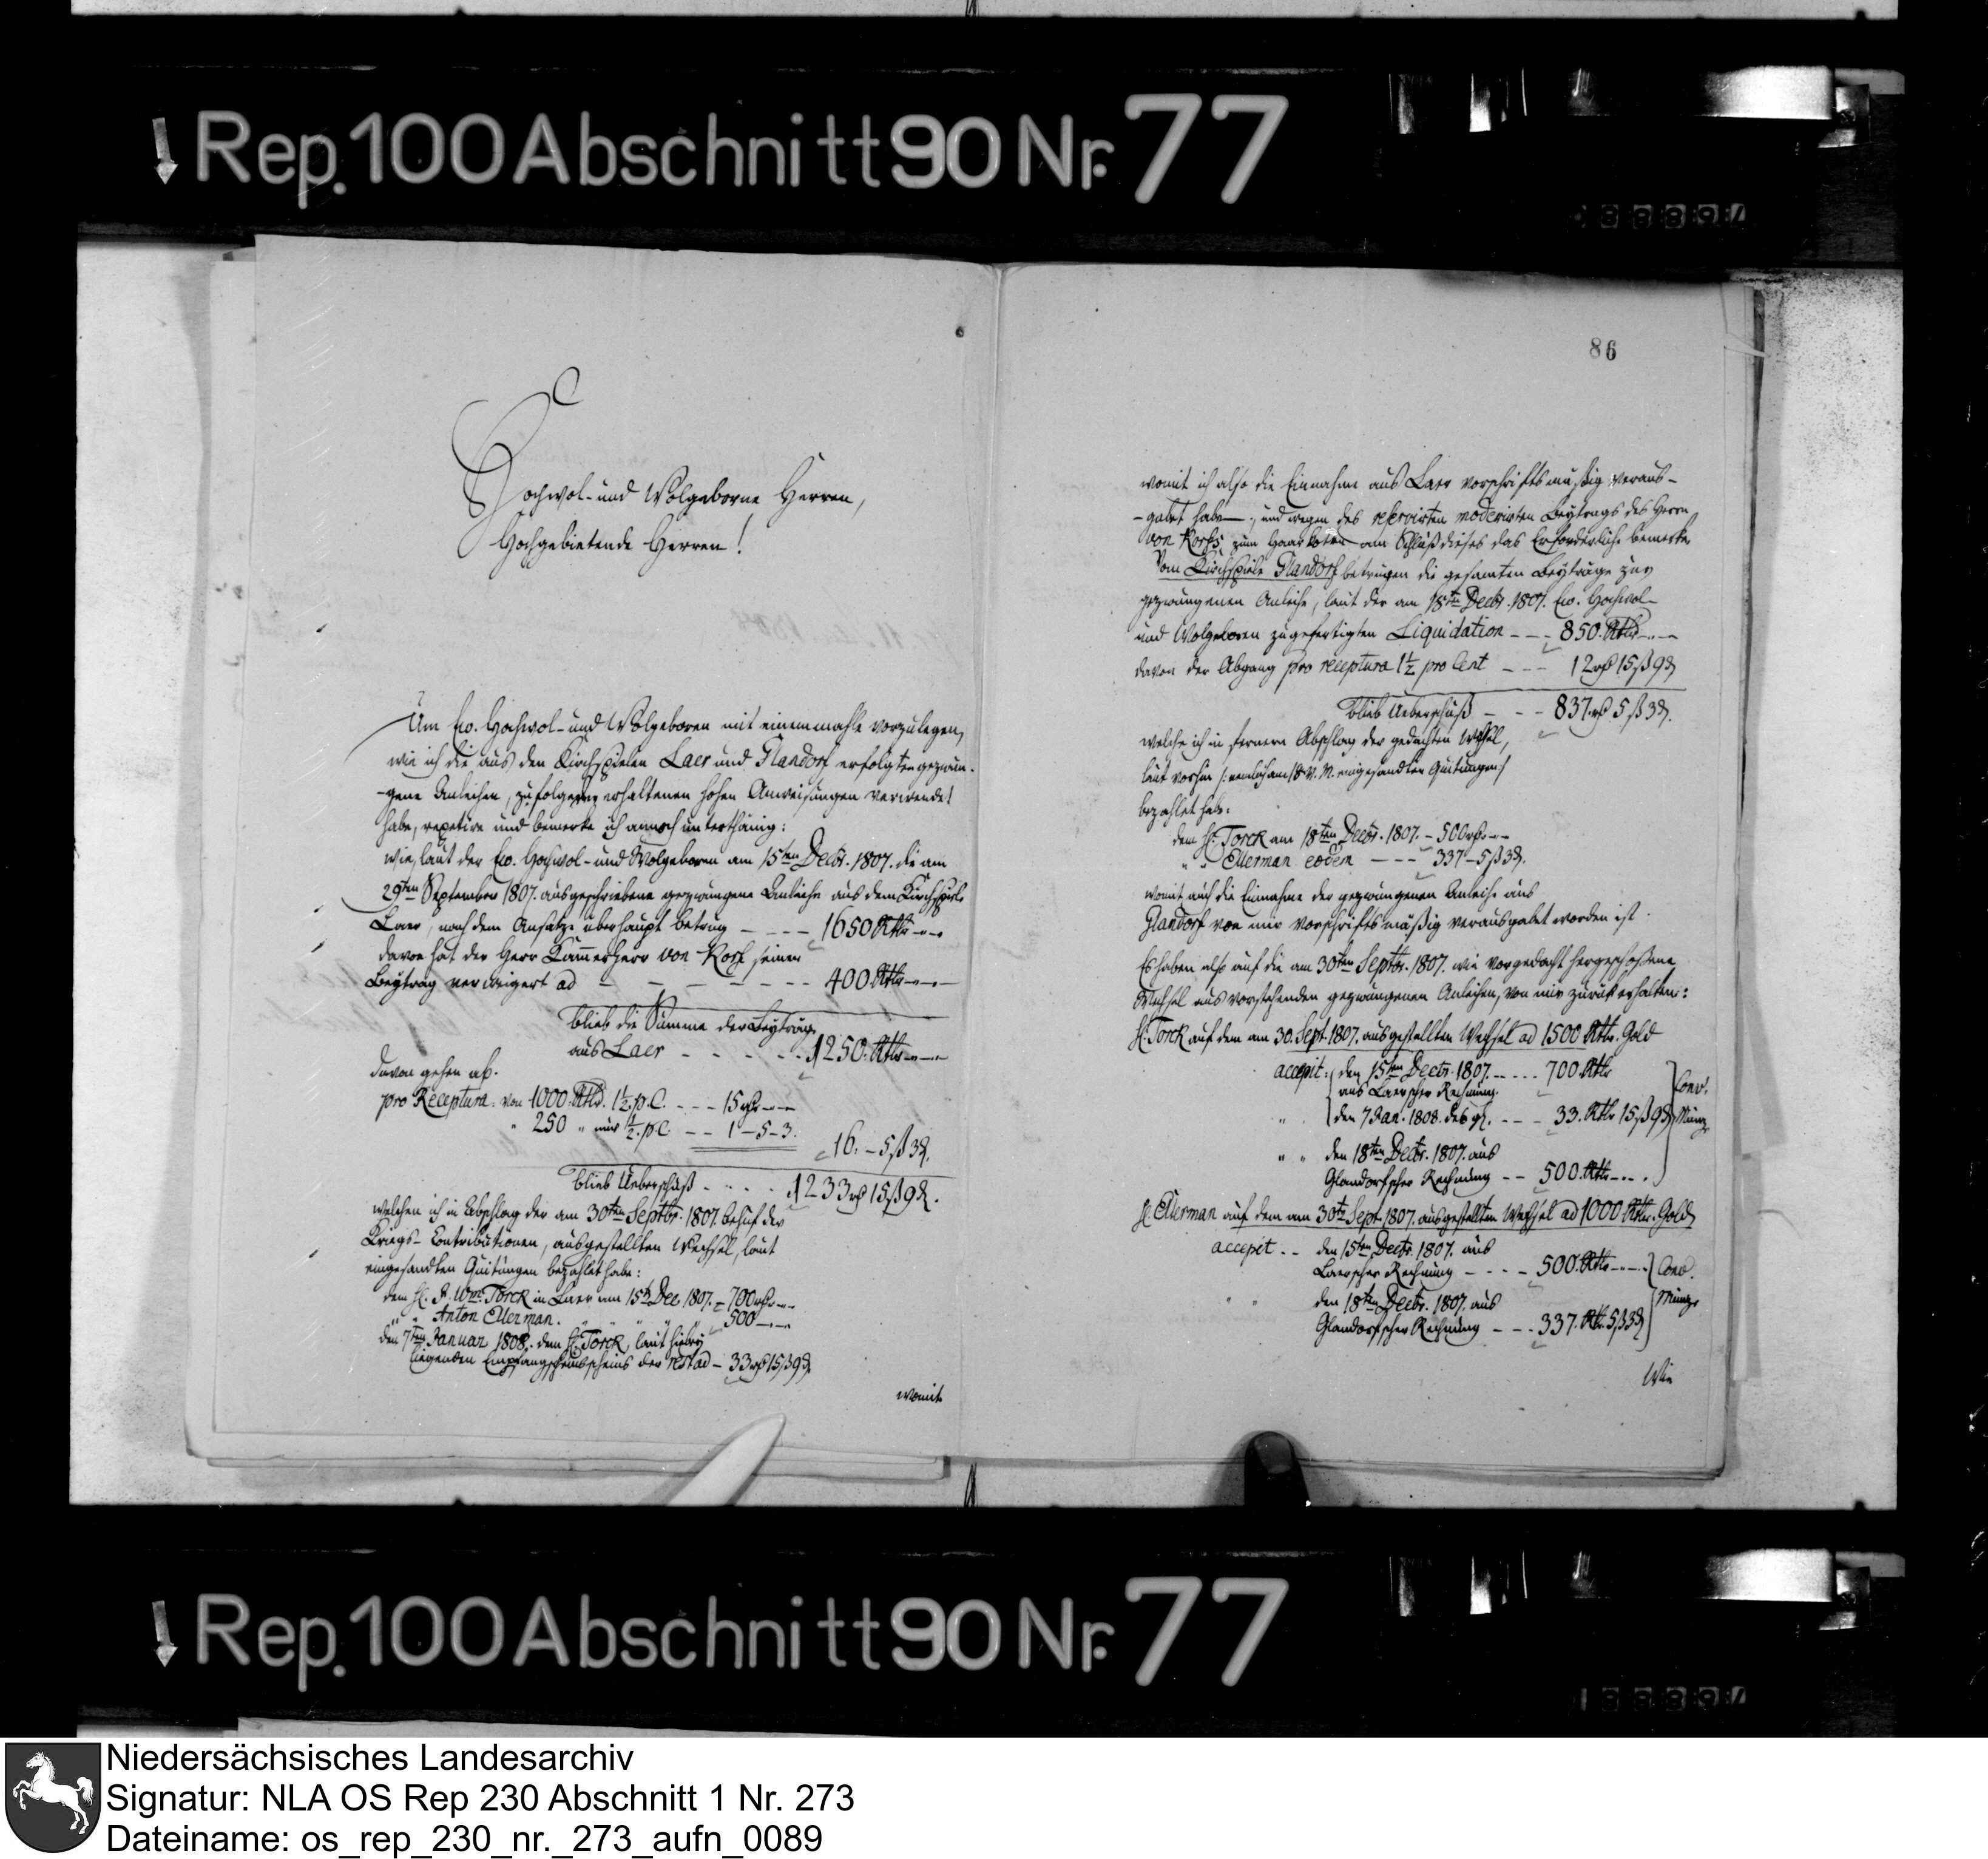 Rep. 100 Abschnitt 90 Nr. 77
Hochwol- und Wolgeborne Herren,
Hochgebietende Herren!
Um Ew. Hochwol- und Wolgeboren mit einemmahle vorzulegen,
wie ich die aus den Kirchspielen Laer und Glandorf erfolgten gezwun-
-gene Anleihen, zufolge der erhaltenen hohen Anweisungen verwendet
habe, repetire und bemerke ich annoch unterthänig:
wie, laut der Ew. Hochwol- und Wolgeboren am 15ten Decbr. 1807. die am
29ten September 1807. ausgeschriebene gezwungene Anleihe aus dem Kirchspiele
Laer, nach dem Ansatze überhaupt betrug - - - - 1650 Rthlr -"-"-
davon hat der Herr Kammerherr von Korf seinen
Beytrag verweigert ad - - - - - - 400. Rthlr -"-"-
blieb die Summe der Beyträge
aus Laer - - - - - 1250. Rthlr -"-"-
davon gehen ab.
pro Receptura. von 1000. Rthlr. 1½ p.C. - - - 15 rthlr -"-"-
" 250 " nur ½ p.C. - - 1 - 5 - 3.
16. - 5 ß 3 d.
blieb Ueberschuß - - - - 1233 rthlr 15 ß 9 d.
welchen ich in Abschlag der am 30ten Septbr. 1807. behuf der
Kriegs-Contributionen, ausgestellten Wechsel, laut
eingesandten Quitungen bezahlet habe:
dem H. R. Wm. Torck in Laer am 15t Dec. 1807. - 700 rthlr -"-
" " Anton Ellerman. " " " 500 -"-"-
den 7ten Januar 1808. dem H. Torck, laut hiebey
liegenden Empfangscheins der rest ad - 33 rthlr 15 ß 9 d
womit
86
womit ich also die Einnahme aus Laer vorschriftsmäßig veraus-
-gabet habe, und wegen des reservirten moderirten Beytrags des Herrn
von Korfs, zum am Schluß dieses das Erforderliche bemerke
Vom Kirchspiele Glandorf betrugen die gesamten Beyträge zur
gezwungenen Anleihe, laut der am 18ten Decbr. 1807. Ew. Hochwol-
und Wolgeboren zugefertigten Liquidation - - - 850. Rthlr -"-"-
davon der Abgang pro receptura 1½ pro Cent - - - 12 rthlr 15 ß 9 d
blieb Ueberschuß - - - 837. rthlr 5 ß 3 d.
welche ich in fernern Abschlag der gedachten Wechsel,
laut vorhin /: nemlich am 18 v. M. eingesandten Quitungen :/
bezahlet habe:
dem H. Torck am 18ten Decbr. 1807. - 500 rthlr -"-
" " Ellerman eodem - - - 337 - 5 ß 3 d.
womit auch die Einnahme der gezwungenen Anleihe aus
Glandorf von mir vorschriftsmäßig verausgabet worden ist.
Es haben also auf die am 30ten Septbr. 1807. wie vorgedacht hergeschoßene
Wechsel aus vorstehenden gezwungenen Anleihen, von mir zurük erhalten:
H. Torck auf dem am 30. Sept. 1807. ausgestellten Wechsel ad 1500 Rthlr. Gold
accepit: den 15ten Decbr. 1807. - - - - 700 Rthlr
aus Laerscher Rechnung.
" den 7 Jan. 1808. desgl. - - - - 33. Rthlr 15 ß 9 d
Conv.
Münze
" " den 18ten Decbr. 1807. aus
Glandorfscher Rechnung - - 500. Rthlr -"-"-
H Ellerman auf dem am 30ten Sept. 1807. ausgestellten Wechsel ad 1000 Rthlr. Gold
accepit - - den 15ten Decbr. 1807. aus
Laerscher Rechnung - - - - 500. Rthlr -"-"-
Conv.
Münze
" " den 18ten Decbr. 1807. aus
Glandorfscher Rechnung - - - 337. Rthlr 5 ß 3 d
Wie
Rep. 100 Abschnitt 90 Nr. 77
Niedersächsisches Landesarchiv
Signatur: NLA OS Rep 230 Abschnitt 1 Nr. 273
Dateiname: os_rep_230_nr._273_aufn_0089